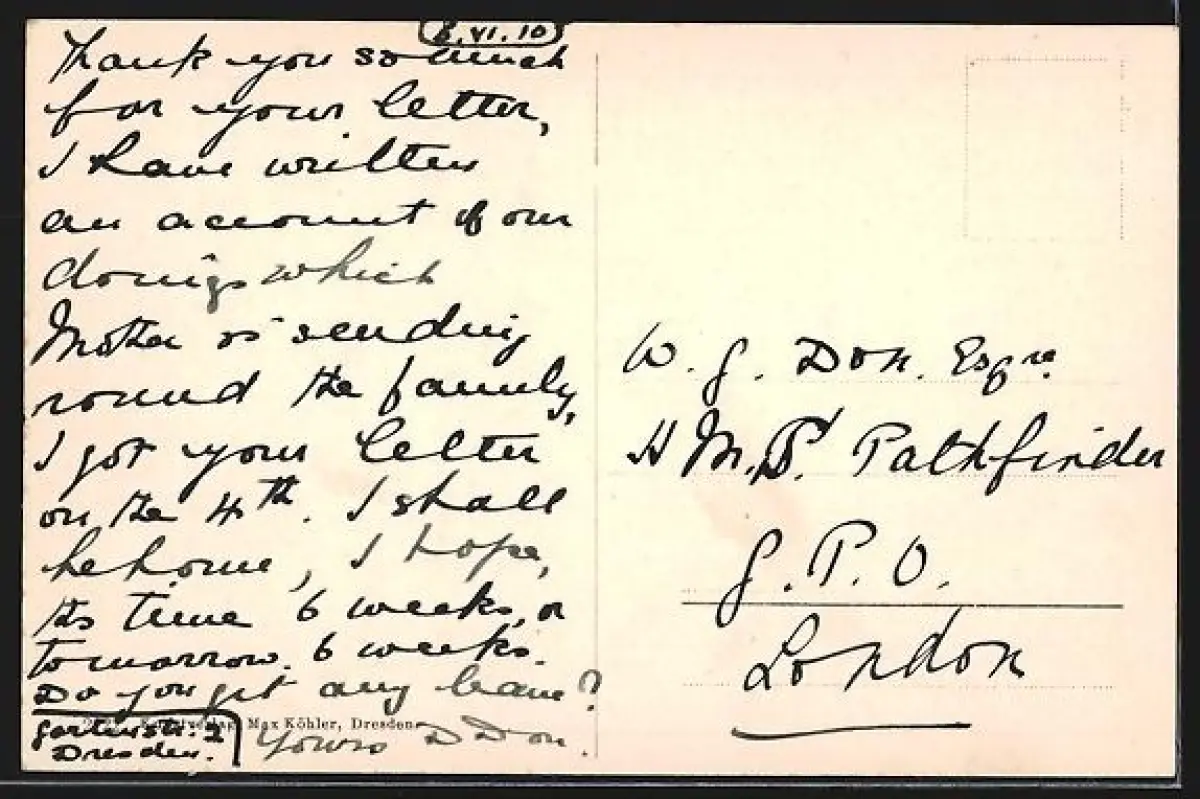 6.VI.10
Thank you so much
for your letter,
I have written
an account of our
doings which
Mother is sending
round the family,
I got your letter
on the 4th. I shall
be home, I hope,
this time 6 weeks, or
tomorrow. 6 weeks.
Do you get any leave?
Yours D Don.
Gartenstr. 2
Dresden.
Kunstverlag Max Köhler, Dresden
W. G. Don. Esqre.
H.M.S. Pathfinder
G.P.O.
London